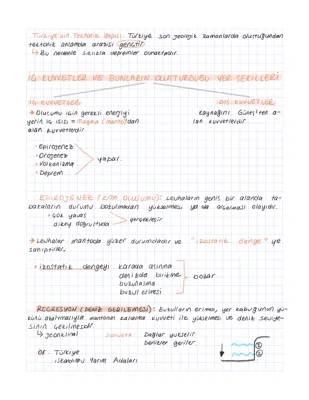 Türkiye'nin Tektonik Yapısı: Türkiye son jeolojik zamanlarda oluştuğundan
tektonik anlamda arazisi gençtir.
↳ Bu nedenle sıklıkla depremler olmaktadır.
İÇ KUVVETLER VE BUNLARIN OLUŞTURDUĞU YER ŞEKİLLERİ
İÇ KUVVETLER
DIŞ KUVVETLER
→ Oluşumu için gerekli enerjiyi
yerin iç ısısı = Magma (manto)dan
alan kuvvetlerdir.
kaynağını Güneş'ten a-
lan kuvvetlerdir.
• Epirojenez
• Orojenez
• Volkanizma
• Deprem
yapar.
EPİROJENEZ (KITA OLUŞUMU): Levhaların geniş bir alanda ta-
bakaların durumu bozulmadan yükselmesi ya da alçalması olayıdır.
• çok yavaş
dikey doğrultuda
gerçekleşir.
→ Levhalar mantoda yüzer durumdadır ve "izostatik denge" ye
sahiptirler.
• izostatik dengeyi
karada aşınma
denizde birikme
buzullaşma
buzul erimesi
bozar
REGRESYON (DENİZ GERİLEMESİ): Buzulların erimesi, yer kabuğunun yü-
künü azaltmasıyla mantonun kaldırma kuvveti ile yükselmesi ve deniz seviye-
sinin çekilmesidir.
↳ jeoanklinal
sonuçta
Dağlar yükselir
Denizler geriler.
ÖR: Türkiye
İskandinav Yarım Adaları